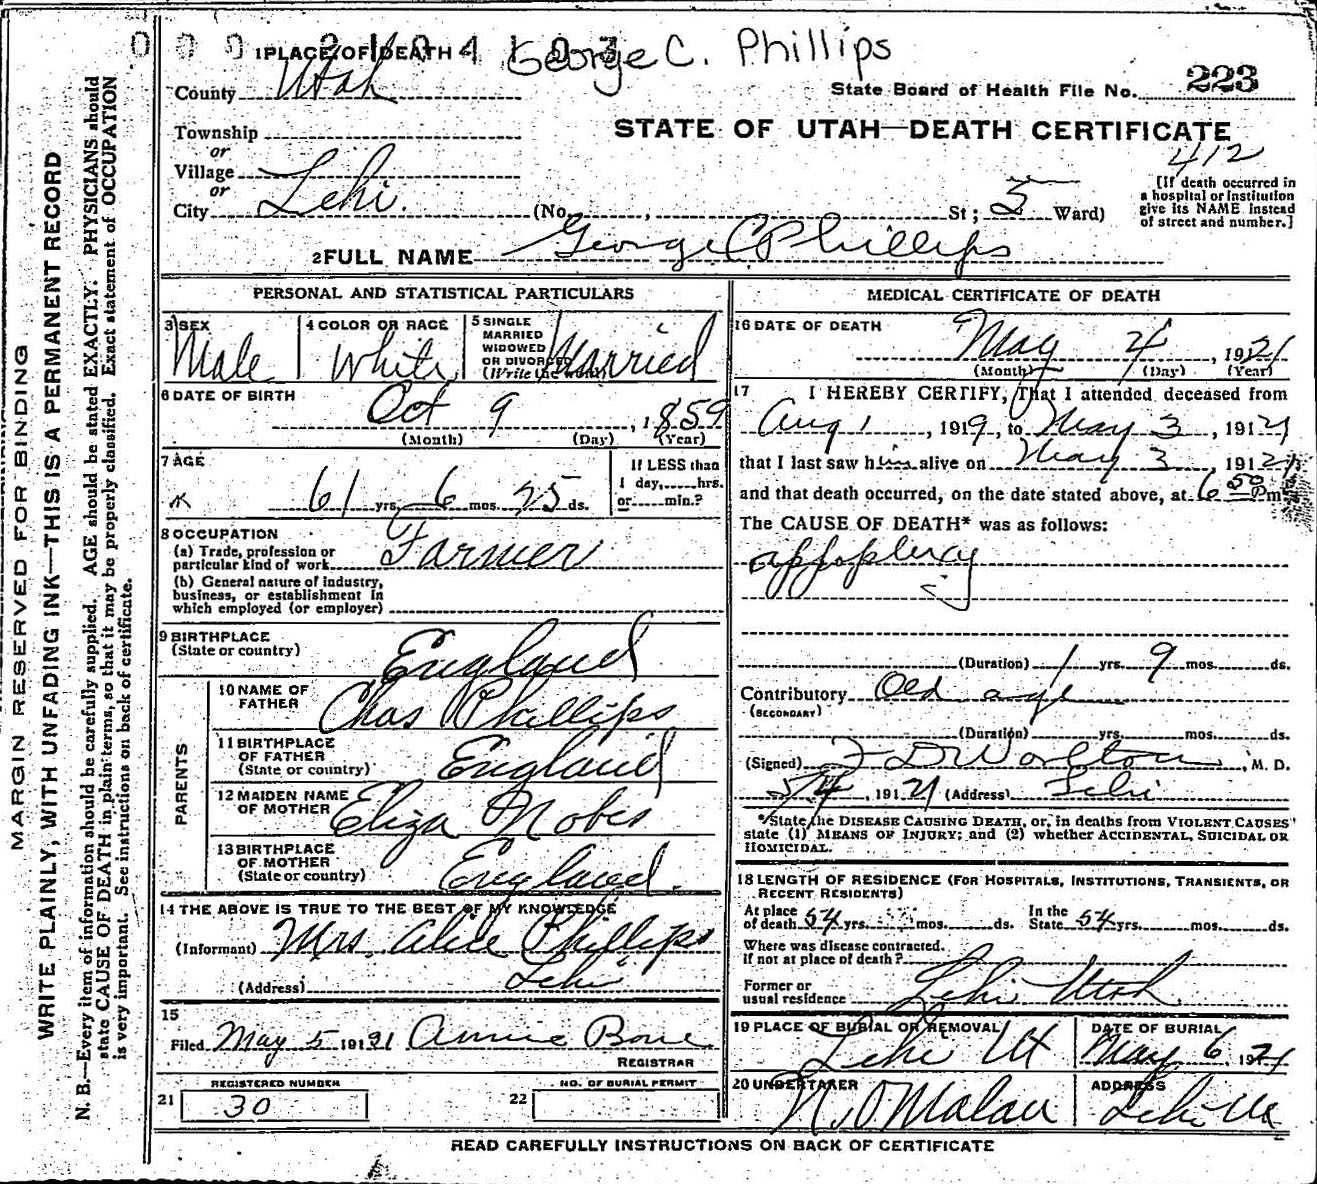 0002104103
George C. Phillips
1 PLACE OF DEATH
County Utah
State Board of Health File No. 223
Township
STATE OF UTAH—DEATH CERTIFICATE
or
412
Village
or
City Lehi.
(No. , St; 5 Ward)
[If death occurred in
a hospital or institution
give its NAME instead
of street and number.]
2 FULL NAME George C Phillips
PERSONAL AND STATISTICAL PARTICULARS
3 SEX
Male
4 COLOR OR RACE
White
5 SINGLE
MARRIED
WIDOWED
OR DIVORCED
(Write the word)
Married
6 DATE OF BIRTH
Oct 9, 1859
(Month) (Day) (Year)
7 AGE
61 yrs. 6 mos. 25 ds.
If LESS than
1 day,......hrs.
or......min.?
8 OCCUPATION
(a) Trade, profession or
particular kind of work Farmer
(b) General nature of industry,
business, or establishment in
which employed (or employer)
9 BIRTHPLACE
(State or country)
England
PARENTS
10 NAME OF
FATHER
Chas Phillips
11 BIRTHPLACE
OF FATHER
(State or country)
England
12 MAIDEN NAME
OF MOTHER
Eliza Nobes
13 BIRTHPLACE
OF MOTHER
(State or country)
England.
14 THE ABOVE IS TRUE TO THE BEST OF MY KNOWLEDGE
(Informant) Mrs. Alice Phillips
(Address) Lehi
15
Filed May 5 191 21 Annie Bone
REGISTRAR
REGISTERED NUMBER
21 30
NO. OF BURIAL PERMIT
22
MEDICAL CERTIFICATE OF DEATH
16 DATE OF DEATH
May 4, 1921
(Month) (Day) (Year)
17 I HEREBY CERTIFY, That I attended deceased from
Aug 1, 1919, to May 3, 191 21
that I last saw him alive on May 3, 191 21
and that death occurred, on the date stated above, at 6 50 Pm
The CAUSE OF DEATH* was as follows:
appoplexy
(Duration) 1 yrs. 9 mos. ds.
Contributory Old age
(SECONDARY)
(Duration) yrs. mos. ds.
(Signed) F D Worlton, M. D.
5/4, 191 21 (Address) Lehi
*State the DISEASE CAUSING DEATH, or, in deaths from VIOLENT CAUSES
state (1) MEANS OF INJURY; and (2) whether ACCIDENTAL, SUICIDAL OR
HOMICIDAL.
18 LENGTH OF RESIDENCE (FOR HOSPITALS, INSTITUTIONS, TRANSIENTS, OR
RECENT RESIDENTS)
At place
of death 54 yrs. mos. ds.
In the
State 54 yrs. mos. ds.
Where was disease contracted.
If not at place of death?
Former or
usual residence Lehi Utah
19 PLACE OF BURIAL OR REMOVAL
Lehi Ut
DATE OF BURIAL
May 6, 1921
20 UNDERTAKER
N. O Malan
ADDRESS
Lehi Ut
READ CAREFULLY INSTRUCTIONS ON BACK OF CERTIFICATE
MARGIN RESERVED FOR BINDING
WRITE PLAINLY, WITH UNFADING INK—THIS IS A PERMANENT RECORD
N. B.—Every item of information should be carefully supplied. AGE should be stated EXACTLY. PHYSICIANS should
state CAUSE OF DEATH in plain terms, so that it may be properly classified. Exact statement of OCCUPATION
is very important. See instructions on back of certificate.